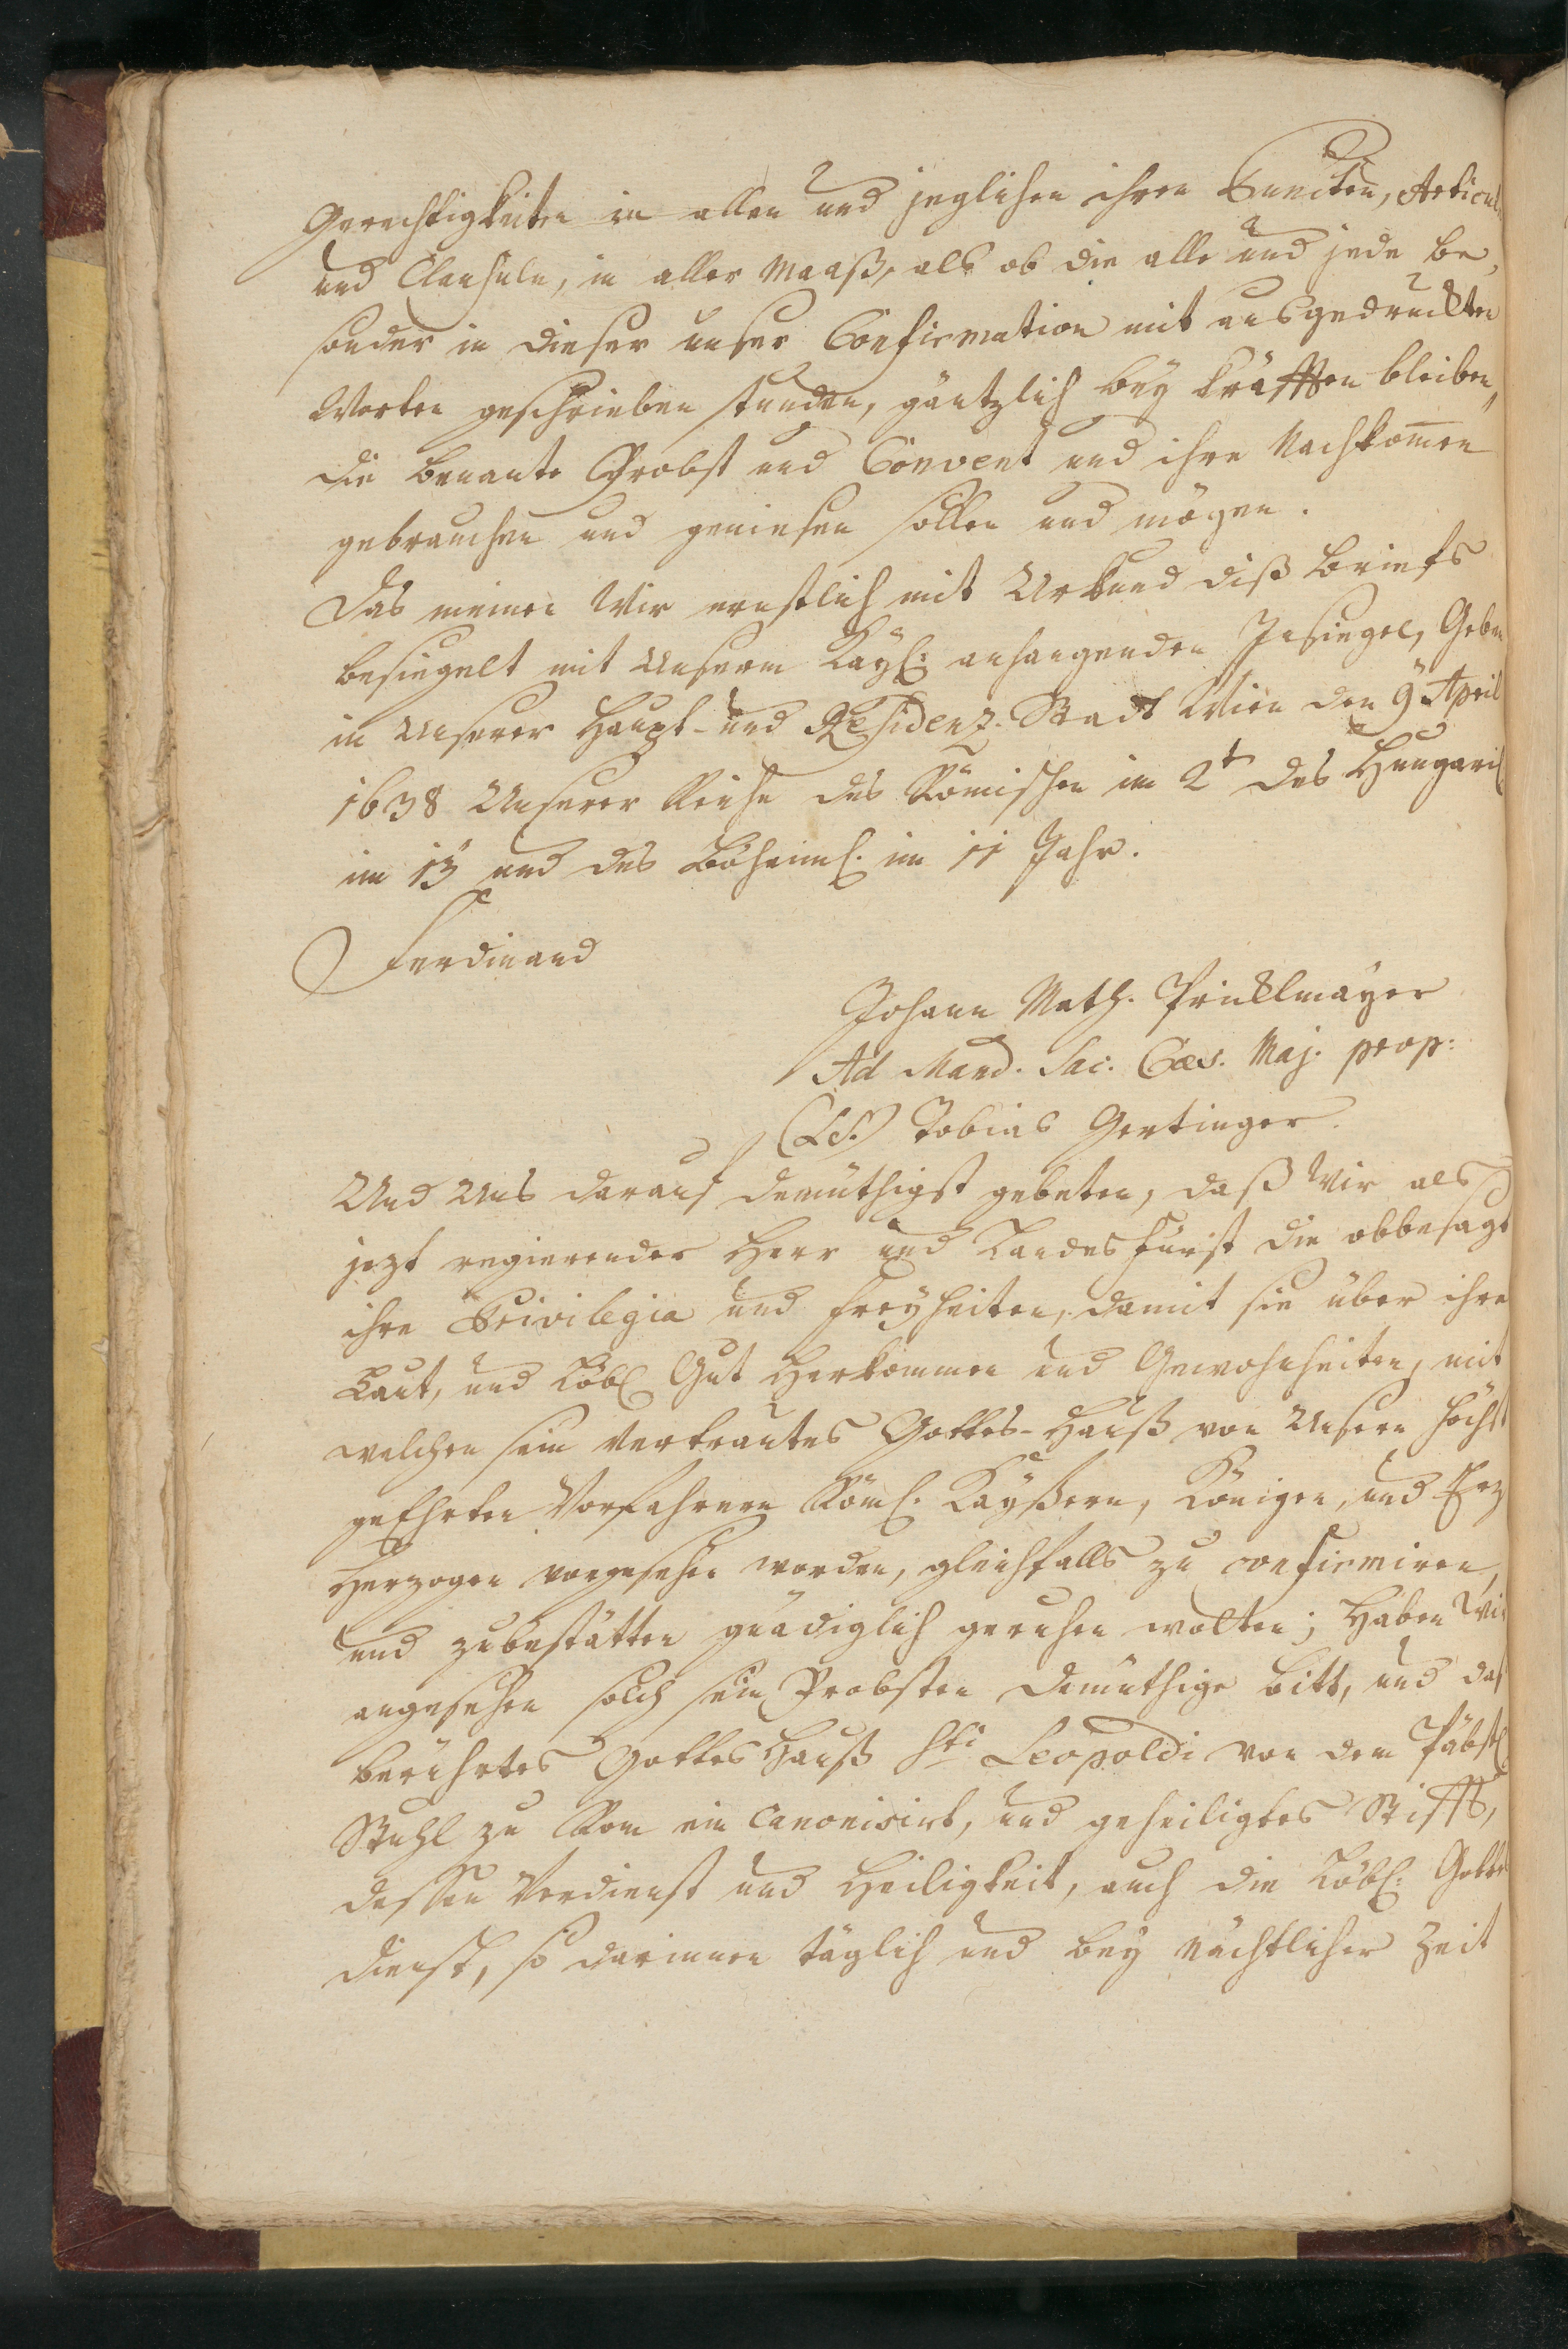 Gerechtigkeiten in allen und jeglichen ihren Puncten, Articul
und Clausuln, in aller Maaß, als ob die alle und jede be,
sonder in dieser unser Confirmation mit ausgedruckten
Worten geschrieben stunden, gäntzlich bey Kräfften bleiben,
die benante Probst und Convent und ihre Nachkom̅en
gebrauchen und geniesen sollen und mögen.
Das meinen Wir ernstlich mit Urkund diß Briefs
besiegelt mit Unserm Kayl: anhangenden Insiegel, Geben
in Unserer Haupt- und Residenz-Stadt Wien den 9 April
1638 Unserer Reiche des Römischen im 2t des Hungaril
im 13 und des Böheiml. im 11 Jahr.
Ferdinand
Johann Math. Pricklmayer
Ad Mand. Sac. Cæs. Maj. prop:
(LS.) Tobias Gertinger.
Und Uns darauf demüthigst gebeten, daß Wir als
jezt regierender Herr und Landes Fürst die obbesagt
ihre Privilegia und Freyheiten, damit sie über ihre
Laut, und Löbl Gut Herkommen und Gewohnheiten, mit
welchen sein vertrautes Gottes-Hauß von Unsern höchst
geEhrten Vorfahrern Röml. Kayßern, Königen, und Erz
Herzogen vorgesehen worden, gleichfalls zu confirmiren,
und zubestätten gnädiglich geruhen wolten; Haben Wir
angesehen solch sein Probsten demüthige Bitt, und daß
berührtes Gottes Hauß Sti Leopoldi von dem Päbstl
Stuhl zu Rom ein Canonisirt, und geheiligtes Stifft,
dessen Verdienst und Heiligkeit, auch die Löbl: Gottes
dienst, so darinnen täglich und bey nächtlicher Zeit